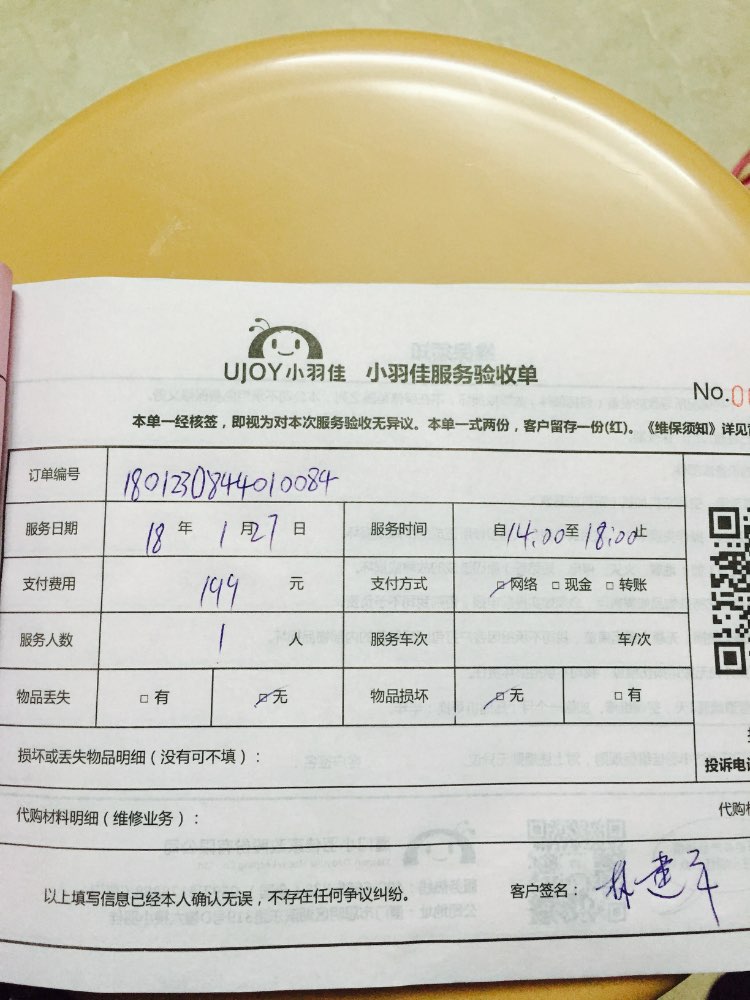 UJOY小羽佳 小羽佳服务验收单
No.0
本单一经核签，即视为对本次服务验收无异议。本单一式两份，客户留存一份(红)。《维保须知》详见
订单编号 180123084401 0084
服务日期 18 年 1 月 27 日 服务时间 自14:00至18:00止
支付费用 199 元 支付方式 □ 网络 □ 现金 □ 转账
服务人数 1 人 服务车次 车/次
物品丢失 □ 有 □ 无 物品损坏 □ 无 □ 有
损坏或丢失物品明细（没有可不填）：
投诉电话
代购材料明细（维修业务）：
代购
以上填写信息已经本人确认无误，不存在任何争议纠纷。 客户签名： 林建军